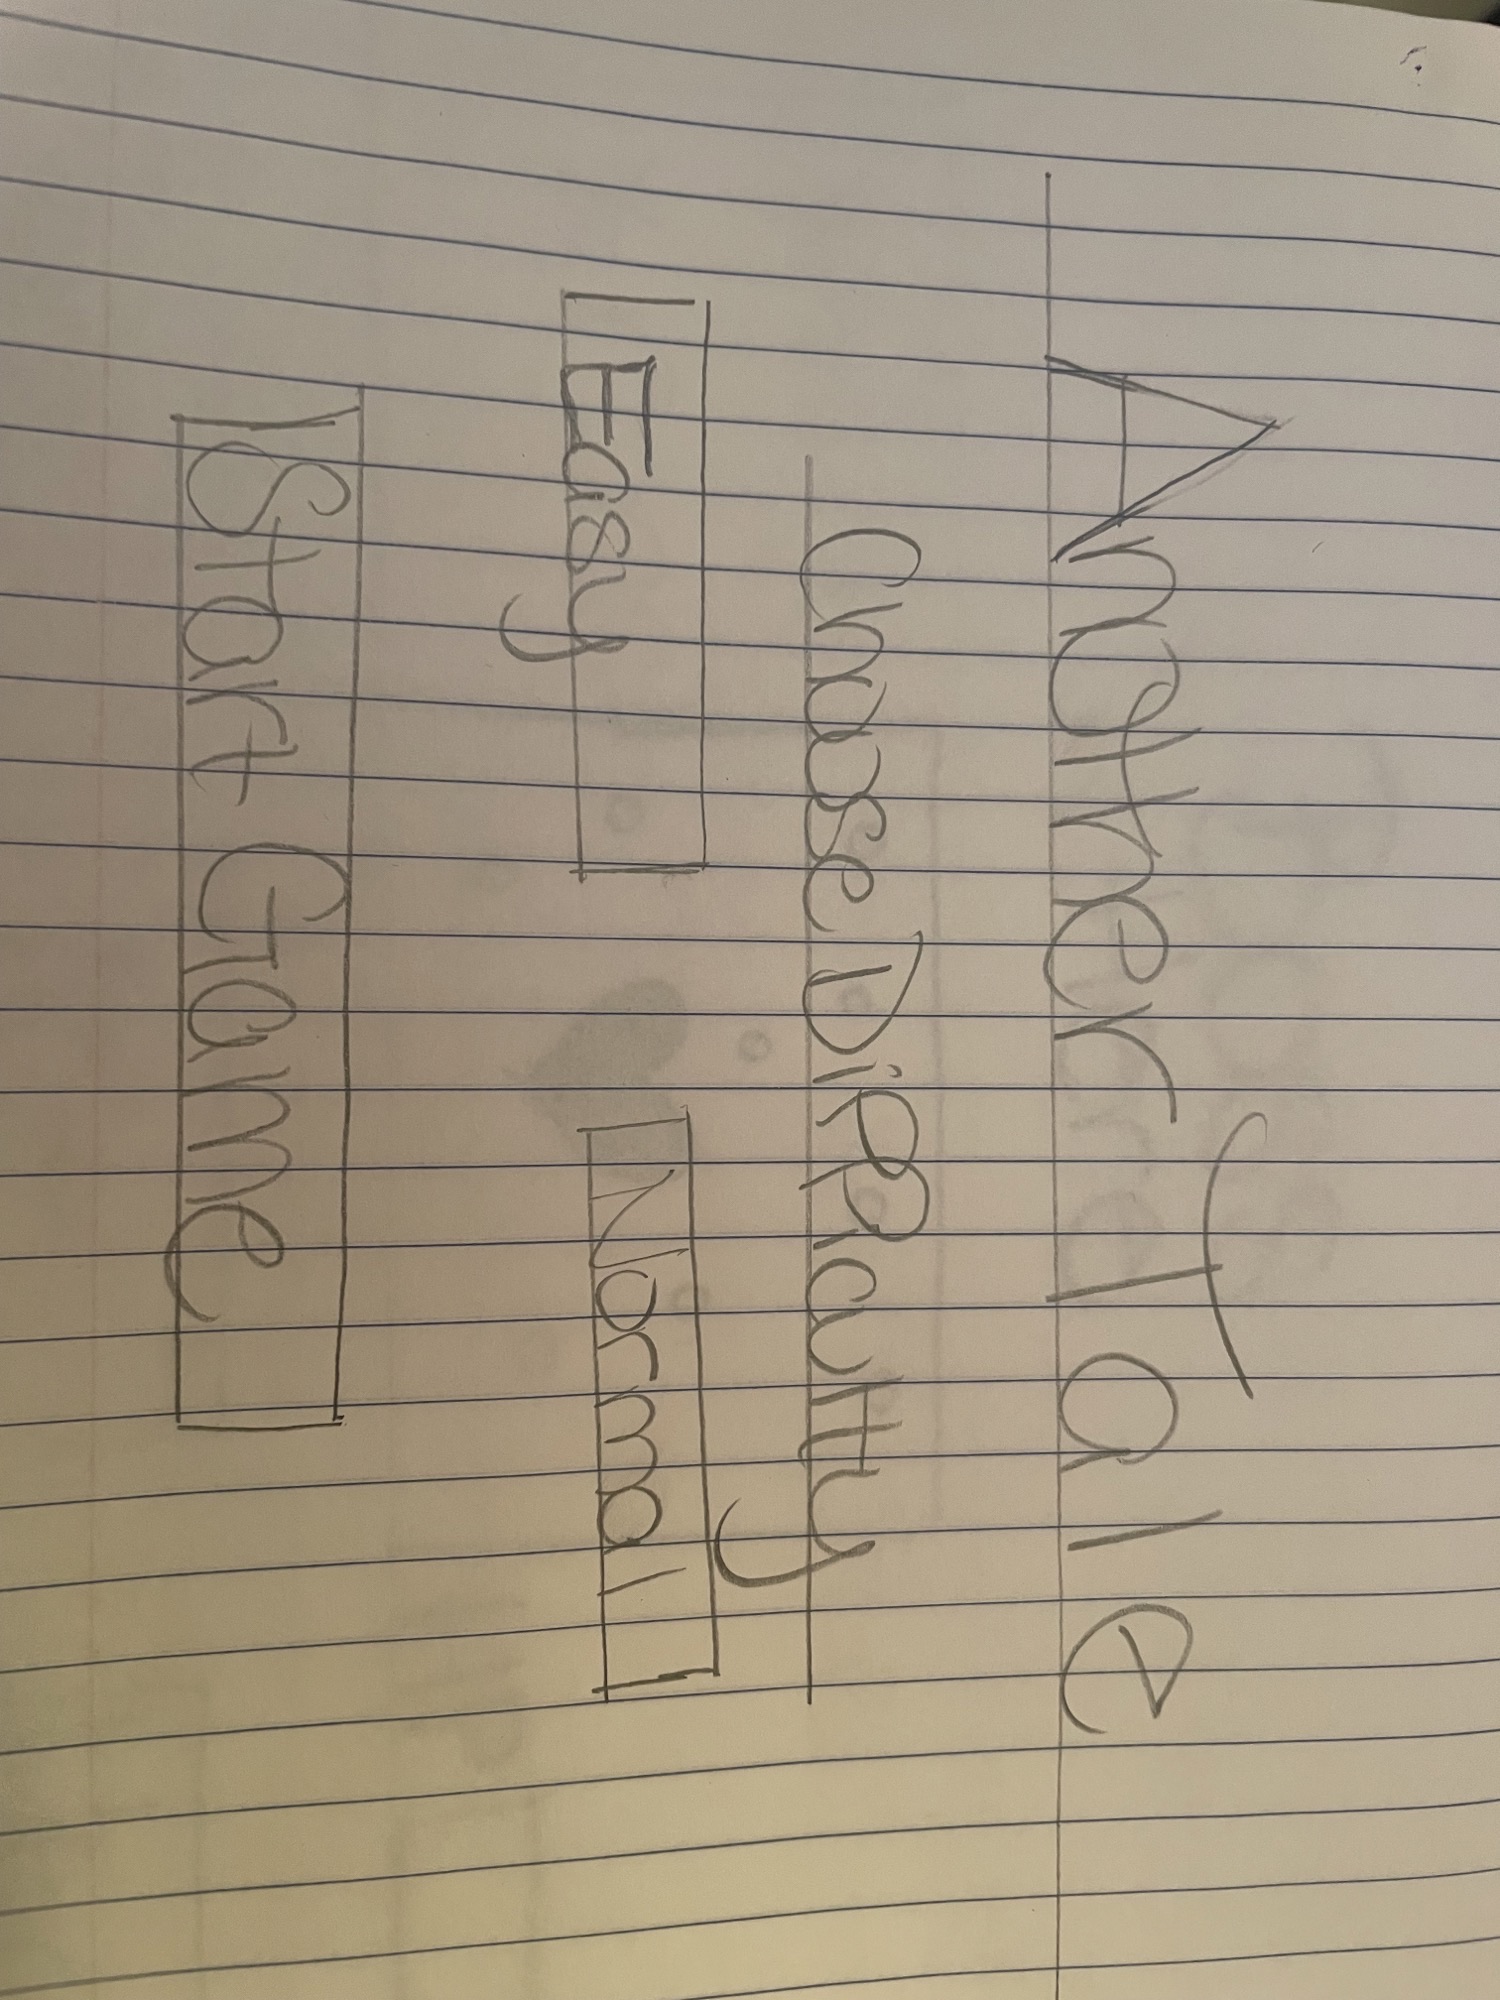 Another Tale
Choose DiPPiculty
Easy Normal
Start Game